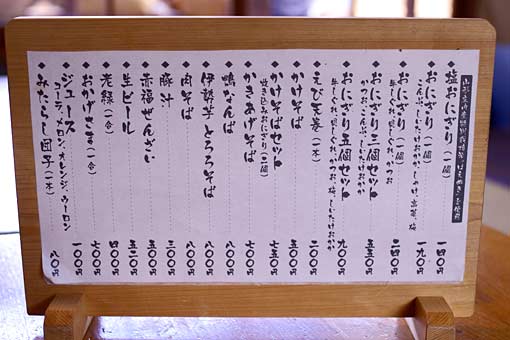 山形庄内産特別栽培米「はえぬき」を使用
◆塩おにぎり(一個) 一四〇円
◆おにぎり(一個) 一九〇円
こんぶ、しいたけおかか、しゃけ、高菜、梅
◆おにぎり(一個) 二四〇円
牛しぐれ、鶏しぐれ、かつお
◆おにぎり三個セット 五五〇円
かつお、こんぶ、しいたけおかか
◆おにぎり五個セット 九〇〇円
牛しぐれ、鶏しぐれ、かつお、梅、しいたけおかか
◆えび天巻(一本) 二〇〇円
◆かけそば 五〇〇円
◆かけそばセット 七五〇円
炊き込みおにぎり(二個)
◆かきあげそば 七〇〇円
◆鴨なんば 八〇〇円
◆伊勢芋とろろそば 八〇〇円
◆肉そば 八〇〇円
◆豚汁 三〇〇円
◆赤福ぜんざい 五〇〇円
◆生ビール 五二〇円
◆老緑(一合) 四〇〇円
◆おかげさま(一合) 七〇〇円
◆ジュース 一〇〇円
コーラ、メロン、オレンジ、ウーロン
みたらし団子(一本) 八〇円